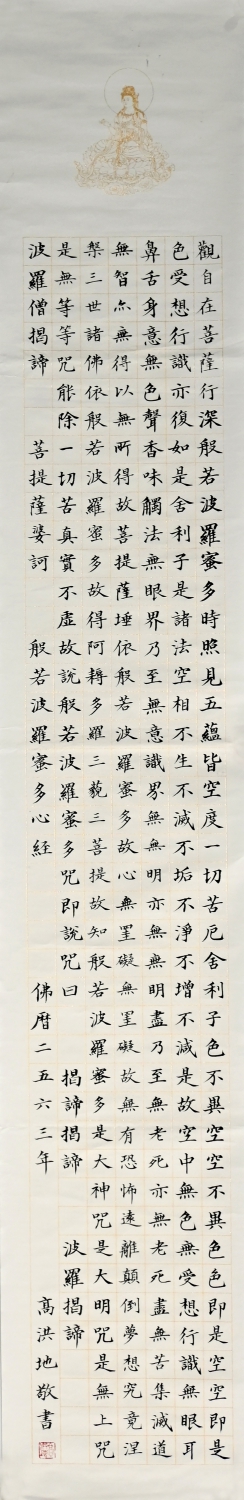 觀自在菩薩行深般若波羅蜜多時照見五蘊皆空度一切苦厄舍利子色不異空空不異色色即是空空即是
色受想行識亦復如是舍利子是諸法空相不生不滅不垢不淨不增不減是故空中無色無受想行識無眼耳
鼻舌身意無色聲香味觸法無眼界乃至無意識界無無明亦無無明盡乃至無老死亦無老死盡無苦集滅道
無智亦無得以無所得故菩提薩埵依般若波羅蜜多故心無罣礙無罣礙故無有恐怖遠離顛倒夢想究竟涅
槃三世諸佛依般若波羅蜜多故得阿耨多羅三藐三菩提故知般若波羅蜜多是大神咒是大明咒是無上咒
是無等等咒能除一切苦真實不虛故說般若波羅蜜多咒即說咒曰 揭諦揭諦 波羅揭諦
波羅僧揭諦 菩提薩婆訶 般若波羅蜜多心経 佛曆二五六三年 高洪地敬書